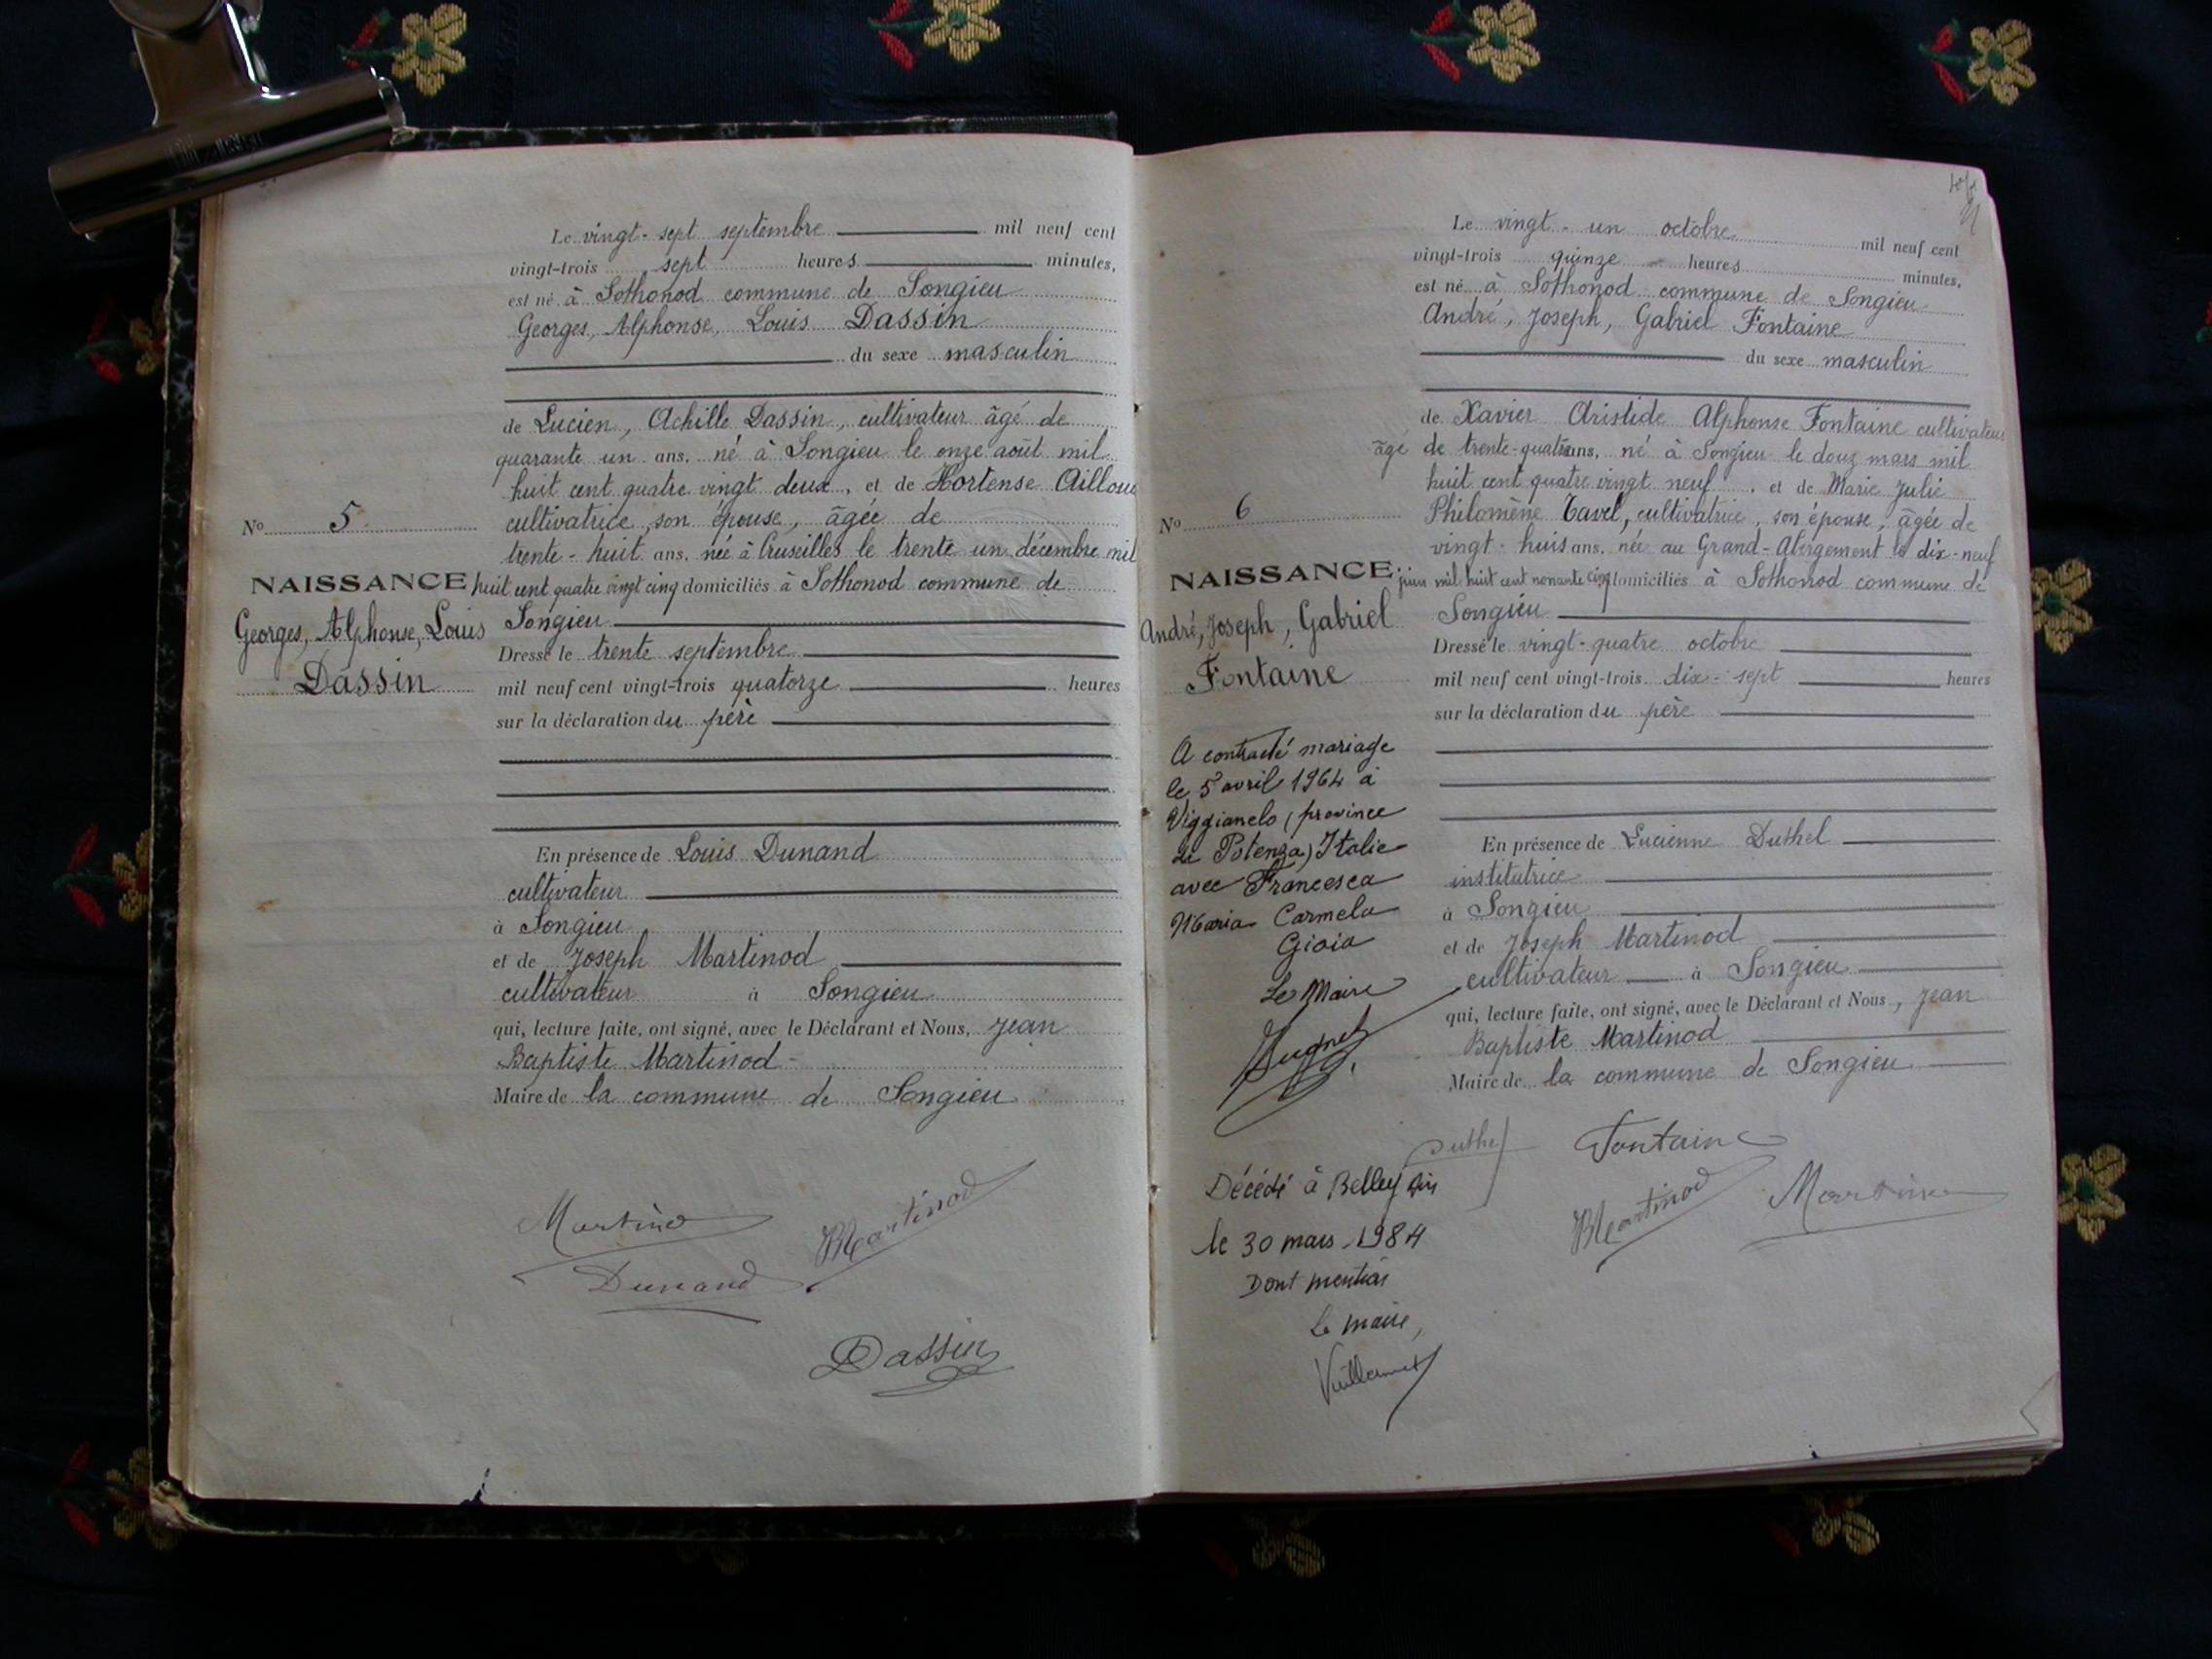 Le vingt-sept septembre mil neuf cent
vingt-trois sept heures minutes,
est né à Sothonod commune de Songieu
Georges, Alphonse, Louis Dassin
du sexe masculin
de Lucien, Achille Dassin, cultivateur âgé de
quarante un ans, né à Songieu le onze août mil
huit cent quatre vingt deux, et de Hortense Ailloud
cultivatrice, son épouse, âgée de
trente-huit ans, née à Cruseilles le trente un décembre mil
huit cent quatre vingt cinq domiciliés à Sothonod commune de
Songieu
Dressé le trente septembre
mil neuf cent vingt-trois quatorze heures
sur la déclaration du père
En présence de Louis Dunand
cultivateur
à Songieu
et de Joseph Martinod
cultivateur à Songieu
qui, lecture faite, ont signé, avec le Déclarant et Nous, Jean
Baptiste Martinod
Maire de la commune de Songieu
No 5
NAISSANCE
Georges, Alphonse, Louis
Dassin
Martinod
Martinod
Dunand
Dassin
Le vingt-un octobre mil neuf cent
vingt-trois quinze heures minutes,
est né à Sothonod commune de Songieu
André, Joseph, Gabriel Fontaine
du sexe masculin
de Xavier Aristide Alphonse Fontaine cultivateur
âgé de trente-quatre ans, né à Songieu le douz mars mil
huit cent quatre vingt neuf, et de Marie Julie
Philomène Tavel, cultivatrice, son épouse, âgée de
vingt-huis ans, née au Grand-Abergement le dix-neuf
juin mil huit cent nonante cinq domiciliés à Sothonod commune de
Songieu
Dressé le vingt-quatre octobre
mil neuf cent vingt-trois dix-sept heures
sur la déclaration du père
En présence de Lucienne Duthel
institutrice
à Songieu
et de Joseph Martinod
cultivateur à Songieu
qui, lecture faite, ont signé, avec le Déclarant et Nous, Jean
Baptiste Martinod
Maire de la commune de Songieu
No 6
NAISSANCE
André, Joseph, Gabriel
Fontaine
A contracté mariage
le 5 avril 1964 à
Viggianelo (province
de Potenza) Italie
avec Francesca
Maria Carmela
Gioia
Le Maire
Décédé à Belley Ain
le 30 mars 1984
Dont mention
Le maire,
Duthel
Fontaine
Martinod
Martinod